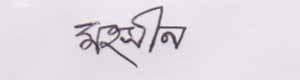 মহসীন